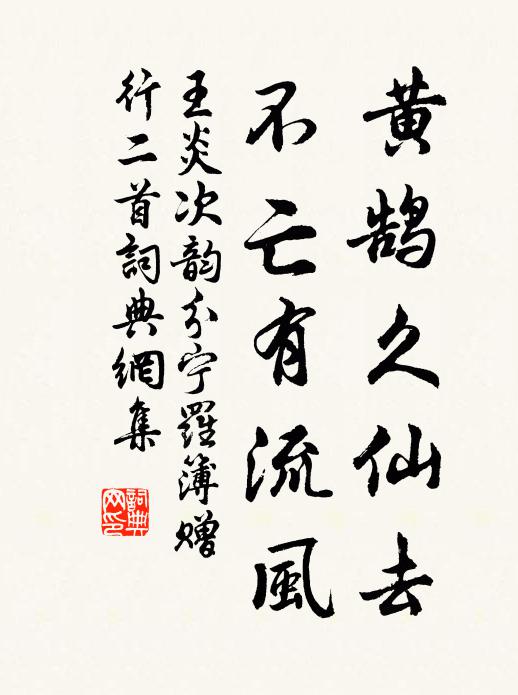 黄鹄久仙去
不亡有流風
王炎次韵分宁羅簿赠
行二首詞典網集
詞典
网印